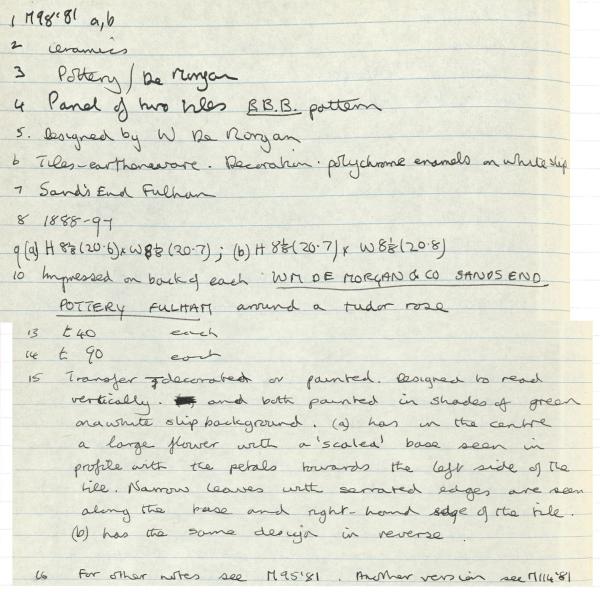 1 M98'81 a,b
2 ceramics
3 Pottery / De Morgan
4 Panel of two tiles B.B.B. pattern
5. Designed by W De Morgan
6 Tiles - earthenware. Decoration. polychrome enamels on white slip
7 Sand's End Fulham
8 1888-97
9 (a) H 8⅛ (20.6) x W 8⅛ (20.7) ; (b) H 8⅛ (20.7) x W 8⅛ (20.8)
10 Impressed on back of each WM DE MORGAN & CO SANDS END
POTTERY FULHAM around a tudor rose
13 £40 each
14 £ 90 each
15 Transfer decorated or painted. Designed to read
vertically. and both painted in shades of green
on a white slip background. (a) has in the centre
a large flower with a 'scaled' base seen in
profile with the petals towards the left side of the
tile. Narrow leaves with serrated edges are seen
along the base and right-hand edge of the tile.
(b) has the same design in reverse.
16 For other notes see M95'81. Another version see M114'81